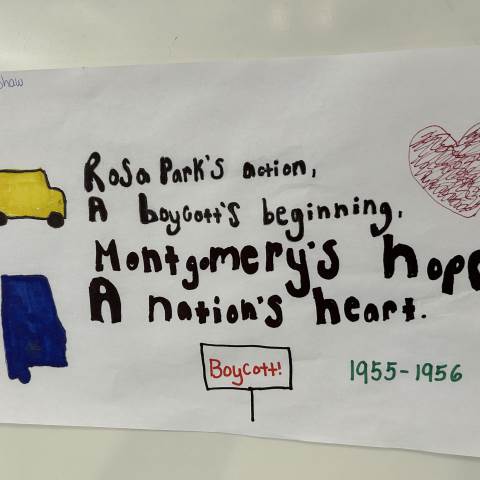 Rosa Park's action,
A boycott's beginning,
Montgomery's hope
A nation's heart.
Boycott!
1955-1956